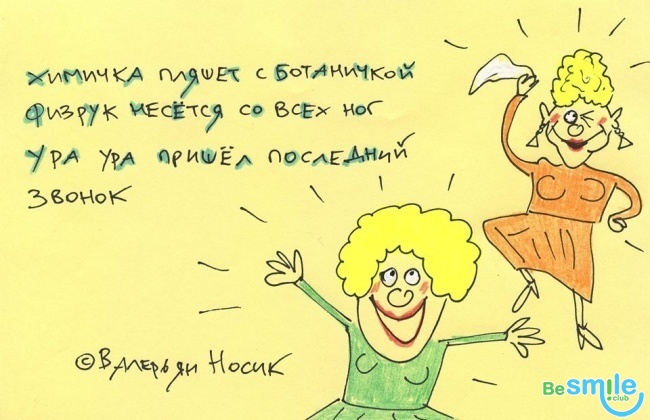 ХИМИЧКА ПЛЯШЕТ С БОТАНИЧКОЙ
ФИЗРУК НЕСЁТСЯ СО ВСЕХ НОГ
УРА УРА ПРИШЁЛ ПОСЛЕДНИЙ
ЗВОНОК
©ВАЛЕРЬЯН НОСИК
Be smile
.club